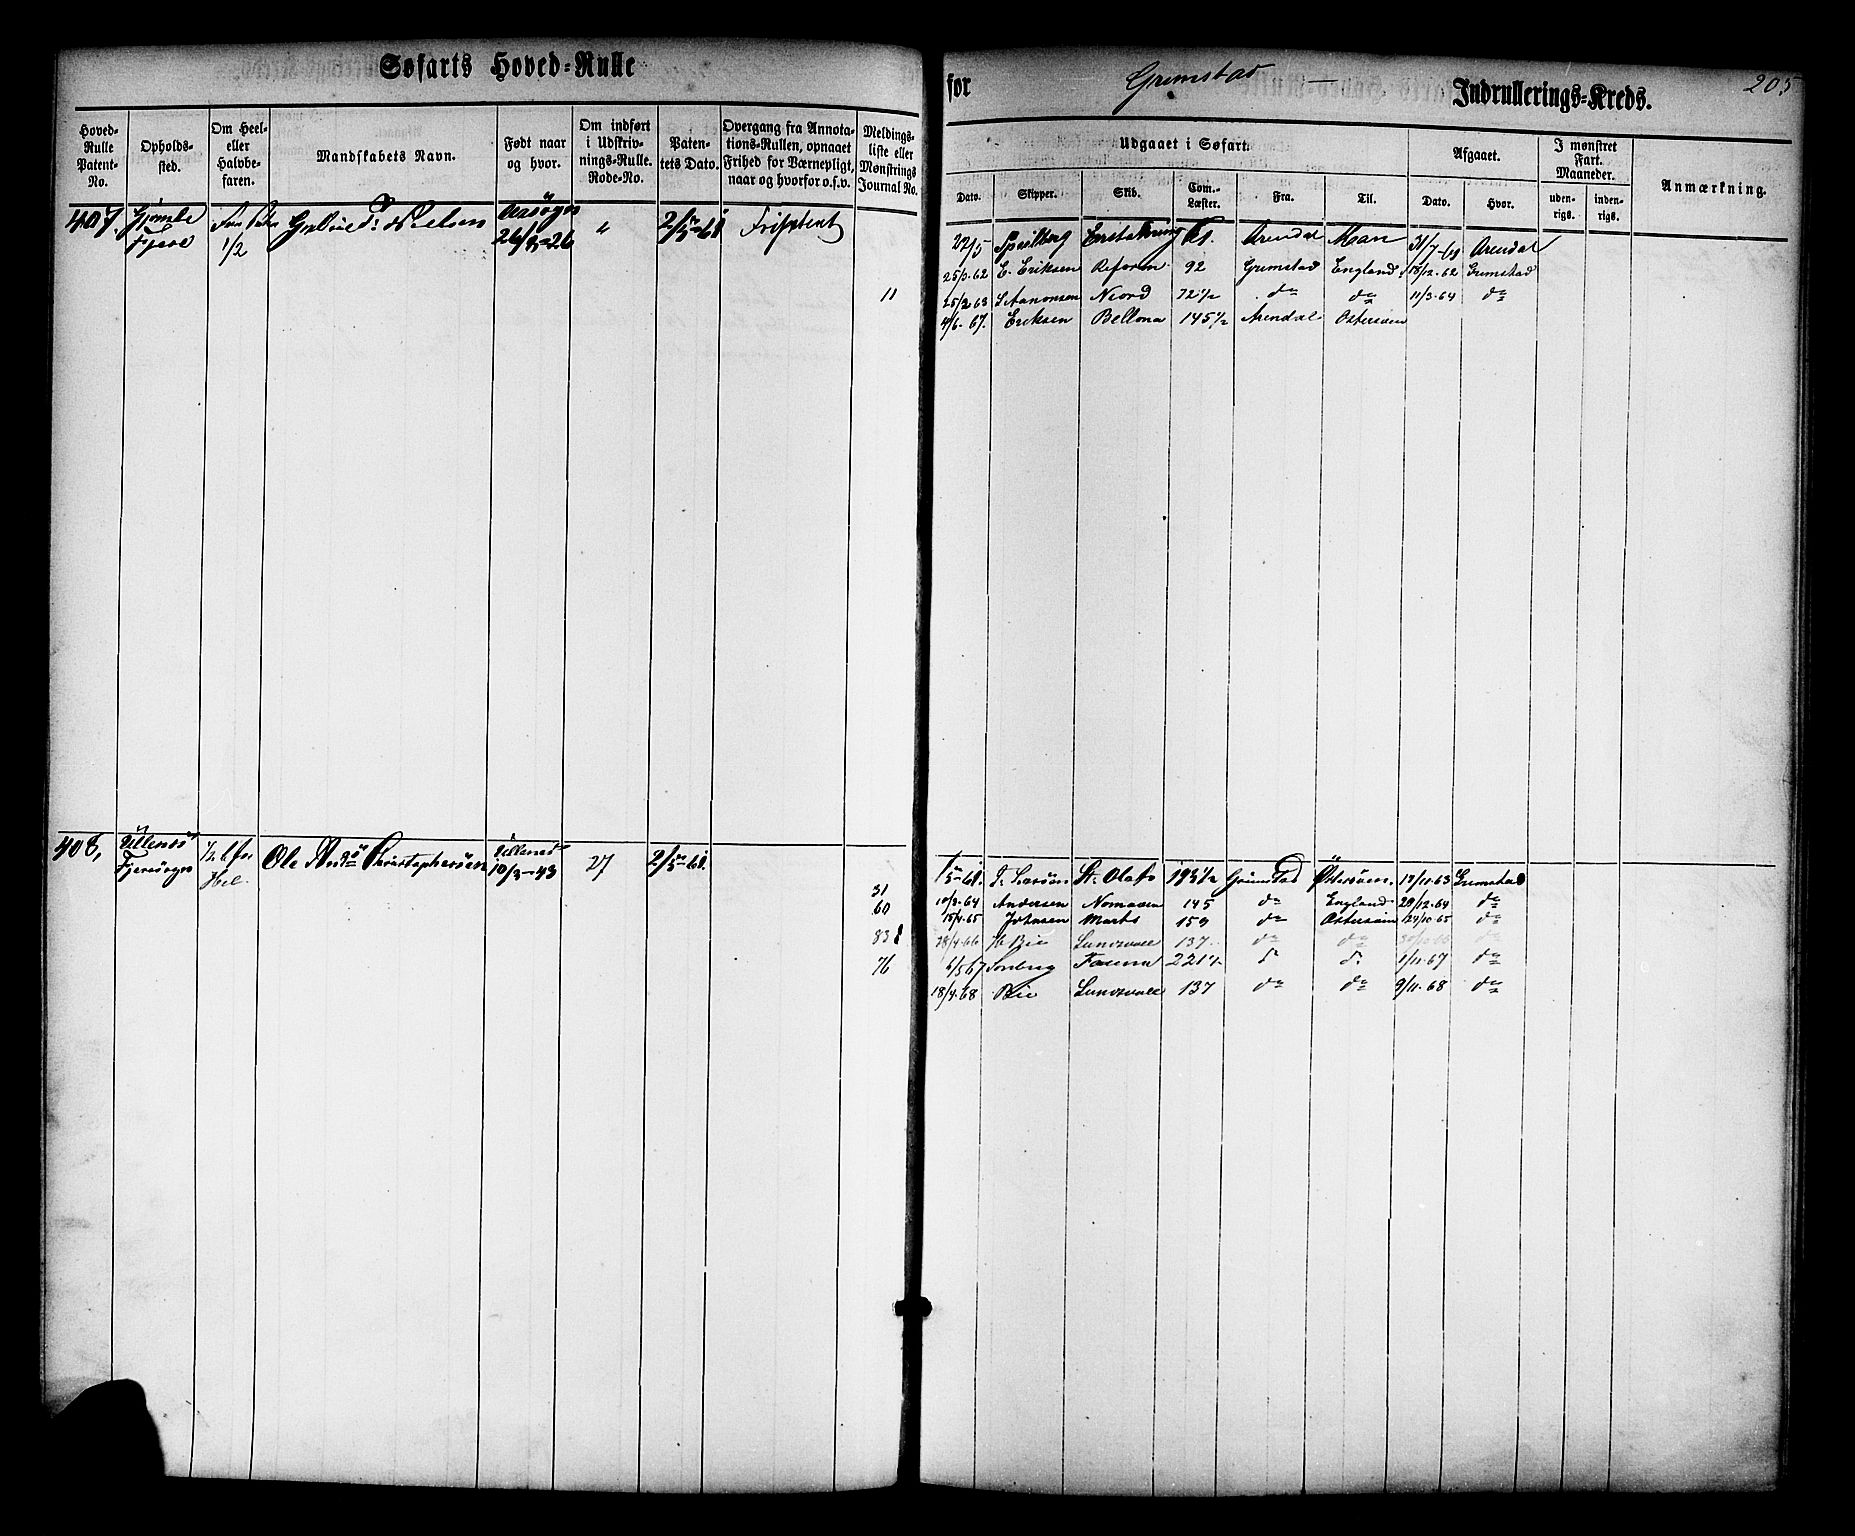 Søfarts Hoved-Rulle
Hoved-Rulle Patent-No.
Opholds-sted.
Om Heel- eller Halvbe-faren.
Mandskabets Navn.
Født naar og hvor.
Om indført i Udskriv-nings-Rulle. Rode-No.
Paten-tets Dato.
Overgang fra Annota-tions-Rullen, opnaaet Frihed for Værnepligt, naar og hvorfor o.s.v.
Meldings-liste eller Mønstrings Journal No.
407 Nielsen 26/8-26 " 2/5-61 Fripatent
Fjere 1/2
11
408, Ole Christophersen 10/3-43 27 2/5-61.
Hel.
31
60
83
76
for Grimstad Indrullerings-Kreds. 205
Udgaaet i Søfart.
Afgaaet.
I mønstret Fart. Maaneder.
Anmærkning.
Dato. Skipper. Skib. Com.-Læster. Fra. Til. Dato. Hvor. uden-rigs. inden-rigs.
22/5 Arendal 31/7-61 Arendal
25/2.62 E. Eriksen Reform 92 Grimstad England 18/12.62 Grimstad
25/2.63 S Aanonsen Niord 72 1/2 do do 11/3.64 do
4/6.67. Eriksen Bellona 145 1/2 Arendal Østersøen
/5-61. St. Olafs 193 1/2 Grimstad Østersøen. 13/11.63 Grimstad
10/3.64 Andersen Nomaden 145 do England 20/12.64 do
15/4.65 Johnsen Marts 159 do Østersøen 24/10.65 do
28/4.66 H Bie Lundevall 137 do do do
6/5 67 221 1/2 do do 1/11.67 do
18/4.68 Bie Lundevall 137 do do 9/11.68 do